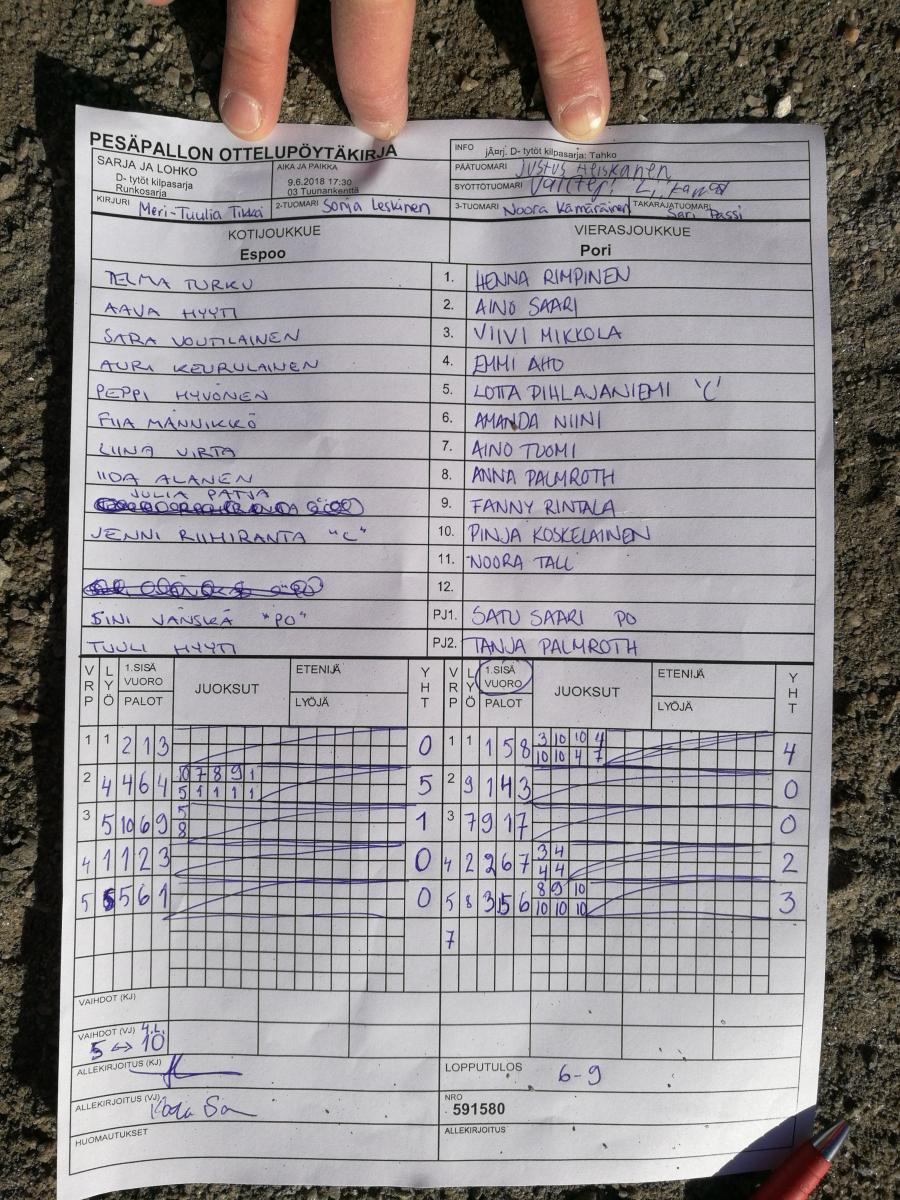 PESÄPALLON OTTELUPÖYTÄKIRJA
INFO jÃ¤rj. D- tytöt kilpasarja: Tahko
SARJA JA LOHKO
D- tytöt kilpasarja
Runkosarja
AIKA JA PAIKKA
9.6.2018 17:30
03 Tuunankenttä
PÄÄTUOMARI Justus Heiskanen
SYÖTTÖTUOMARI
KIRJURI Meri-Tuulia Tikkai
2-TUOMARI Sonja Leskinen
3-TUOMARI Noora Kämäräinen
TAKARAJATUOMARI Sari Passi
KOTIJOUKKUE VIERASJOUKKUE
Espoo Pori
TELMA TURKU 1. HENNA RIMPINEN
AAVA HYYTI 2. AINO SAARI
SARA VOUTILAINEN 3. VIIVI MIKKOLA
AURI KEURULAINEN 4. EMMI AHO
PEPPI HYVÖNEN 5. LOTTA PIHLAJANIEMI "C"
FIIA MÄNNIKKÖ 6. AMANDA NIINI
LIINA VIRTA 7. AINO TUOMI
IIDA ALANEN 8. ANNA PALMROTH
JULIA PATJA 9. FANNY RINTALA
JENNI RIIHIRANTA "C" 10. PINJA KOSKELAINEN
11. NOORA TALL
12.
SINI VÄNSKÄ "PO" PJ1. SATU SAARI PO
TUULI HYYTI PJ2. TANJA PALMROTH
VRP LYÖ 1.SISÄ VUORO PALOT JUOKSUT ETENIJÄ LYÖJÄ YHT VRP LYÖ 1.SISÄ VUORO PALOT JUOKSUT ETENIJÄ LYÖJÄ YHT
1 1 2 1 3 0 1 1 1 5 8 3 10 10 4 4
10 10 4 7
2 4 4 6 4 10 7 8 9 1 5 2 9 1 4 3 0
5 1 1 1 1
3 5 10 6 9 5 1 3 7 9 1 7 0
8
4 1 1 2 3 0 4 2 2 6 7 3 4 2
4 4
5 5 5 6 1 0 5 8 3 5 6 8 9 10 3
10 10 10
7
VAIHDOT (KJ)
VAIHDOT (VJ) 4.L.
5 ↔ 10
ALLEKIRJOITUS (KJ)
LOPPUTULOS 6-9
ALLEKIRJOITUS (VJ)
NRO
591580
HUOMAUTUKSET
ALLEKIRJOITUS